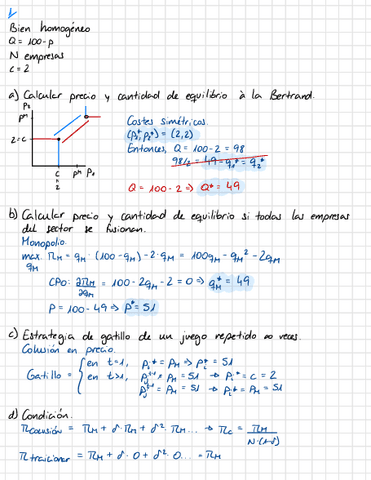 1/
Bien homogéneo
Q = 100-p
N empresas
c = 2
a) Calcular precio y cantidad de equilibrio à la Bertrand.
P₂
pᴹ
2=c
c
=
2
pᴹ P₁
Costes simétricos.
(p₁*, p₂*) = (2,2)
Entonces, Q = 100-2 = 98
98/2 = 49 = q₁* = q₂*
Q = 100-2 => Q* = 49
b) Calcular precio y cantidad de equilibrio si todas las empresas
del sector se fusionan.
Monopolio.
max πM = qM · (100-qM) - 2·qM = 100qM - qM² - 2qM
qM
CPO: ∂πM/∂qM = 100-2qM-2 = 0 => qM* = 49
P = 100-49 => P* = 51
c) Estrategia de gatillo de un juego repetido ∞ veces.
Colusión en precio.
Gatillo = { en t=1, Pi* = PM => Pi* = 51
en t>1, Pjᵗ⁻¹ ≠ PM = 51 → Pi* = c = 2
Pjᵗ⁻¹ = PM = 51 → Pi* = PM = 51
d) Condición.
πcolusión = πM + δ·πM + δ²·πM... → πc = πM/N·(1-δ)
πtraicionar = πM + δ·0 + δ²·0... = πM